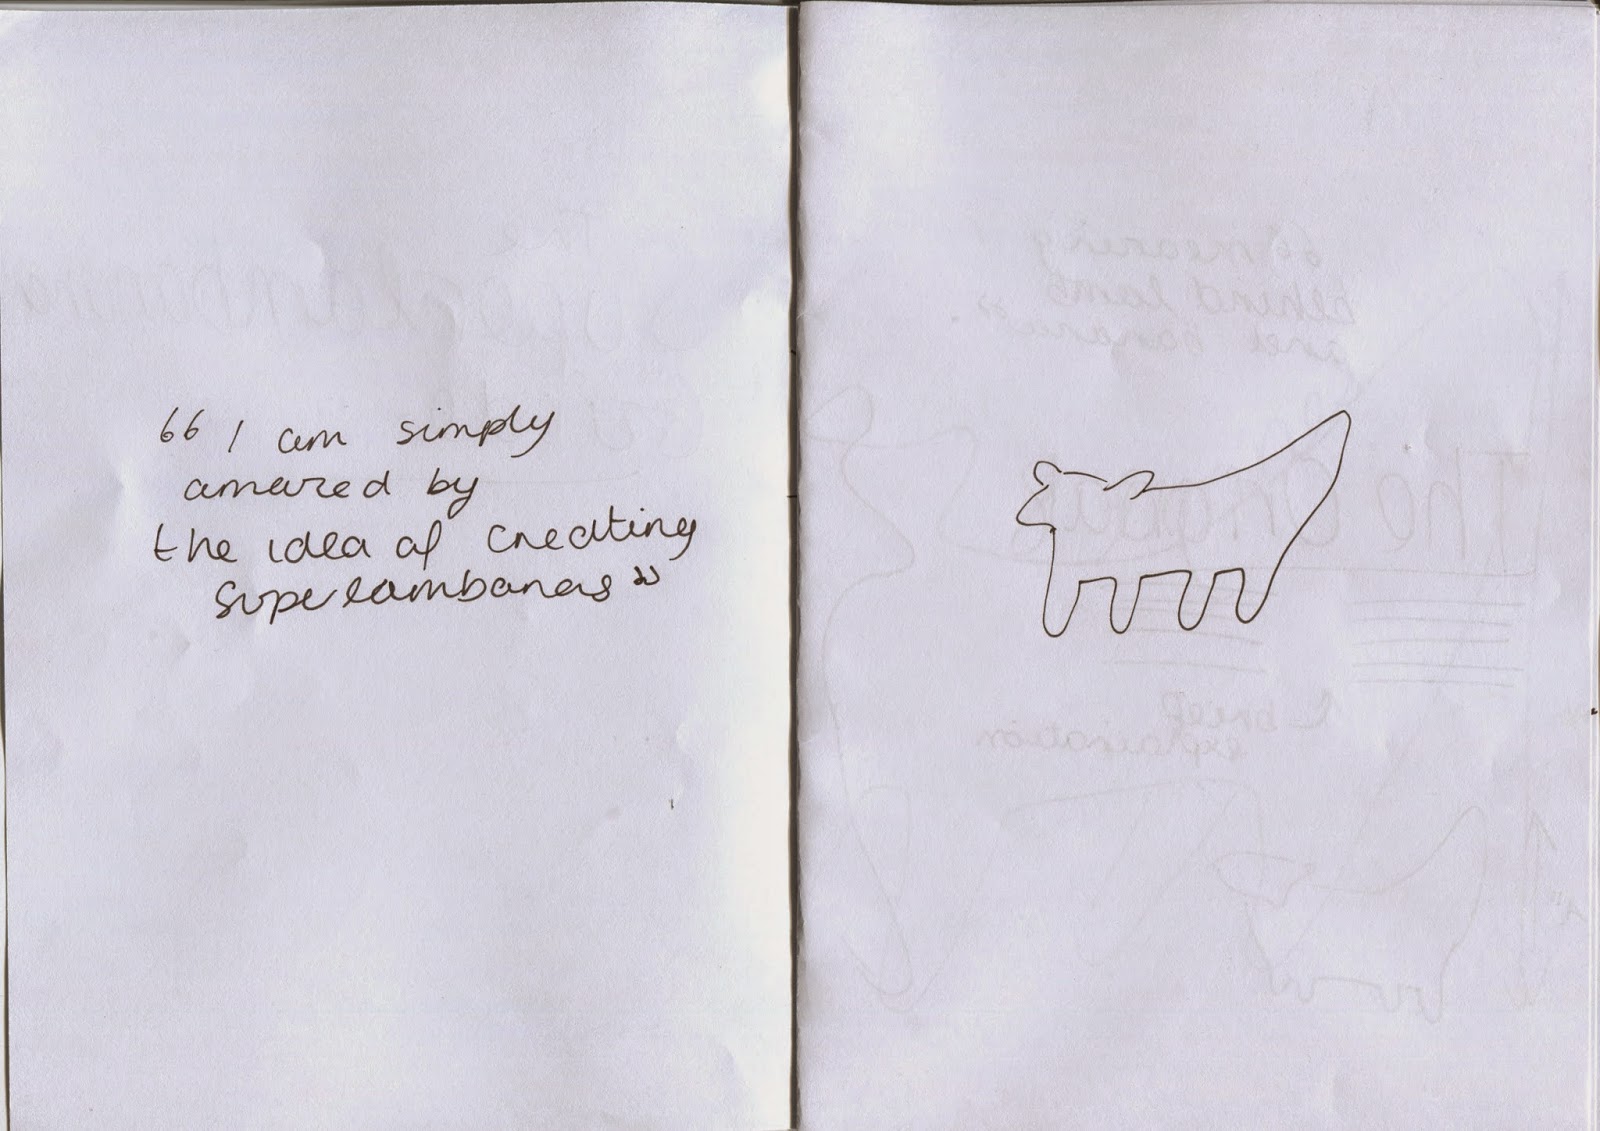 “I am simply
amazed by
the idea of creating
Superlambanas”